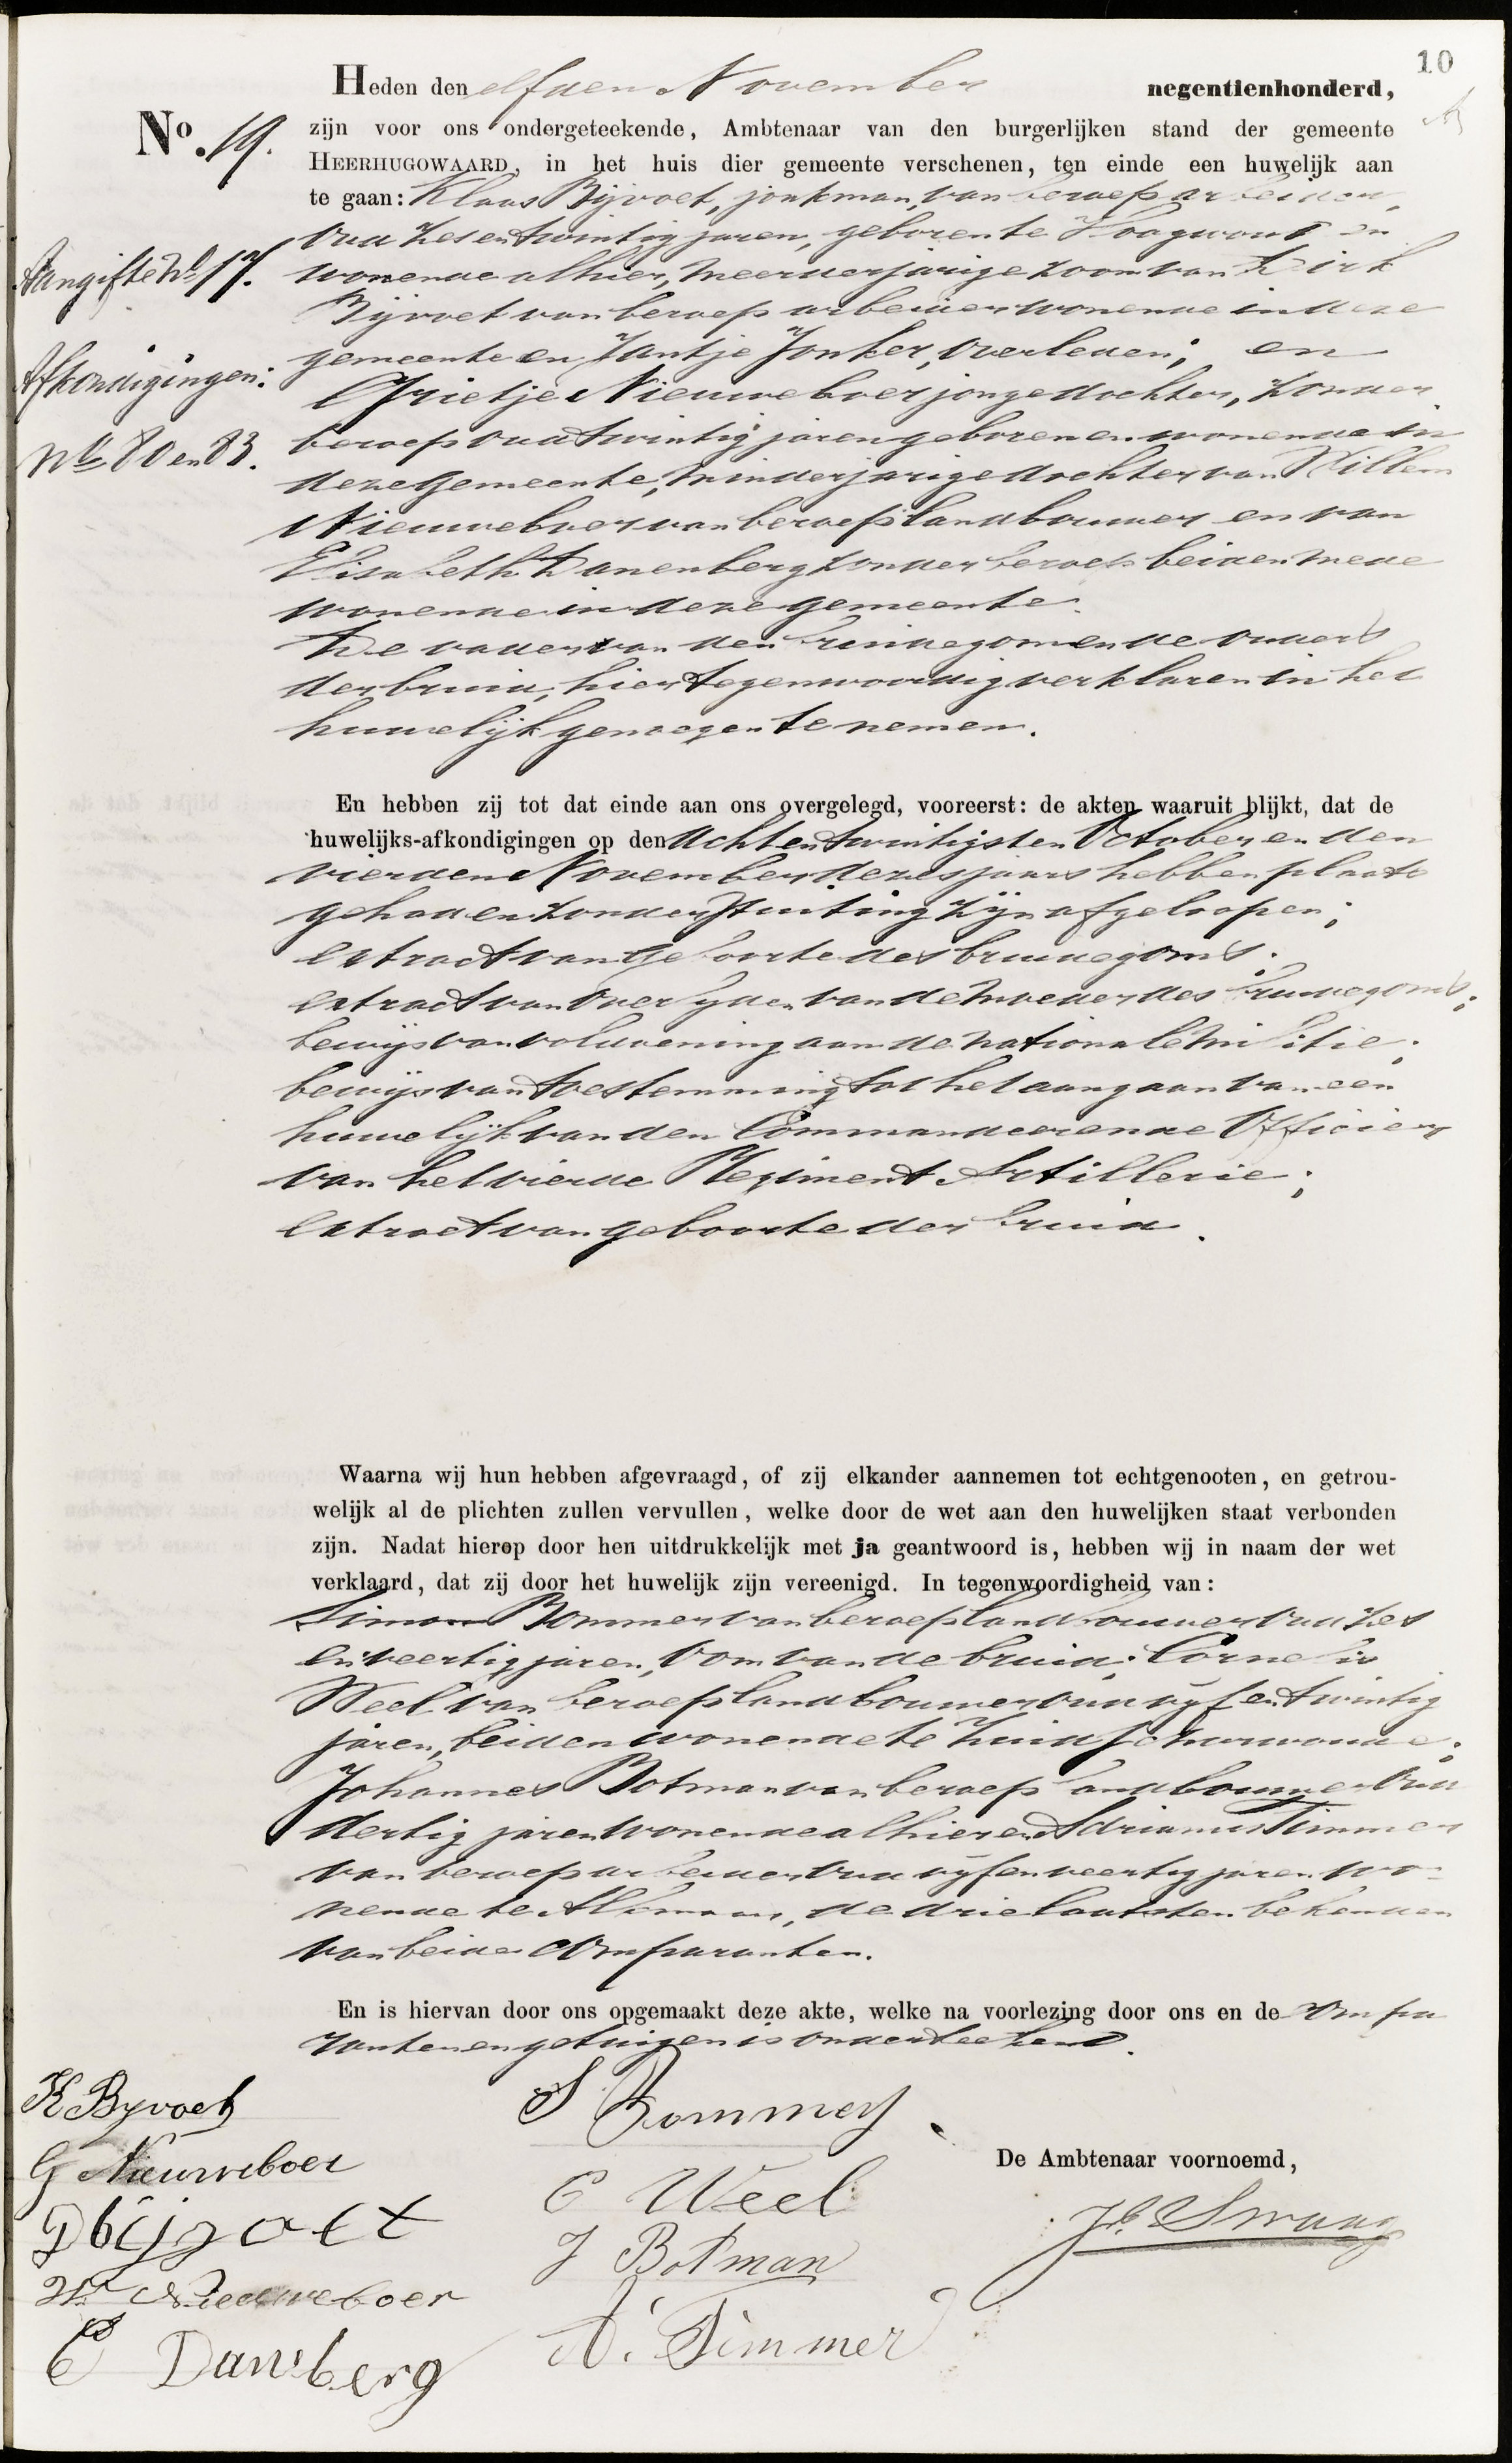 10
Heden den elfden November negentienhonderd,
No. 19.
zijn voor ons ondergeteekende, Ambtenaar van den burgerlijken stand der gemeente
HEERHUGOWAARD, in het huis dier gemeente verschenen, ten einde een huwelijk aan
te gaan: Klaas Bijvoet, jonkman, van beroep arbeider,
oud zes en twintig jaren, geboren te Hoogwoud en
Aangifte No 17.
wonende alhier, meerderjarige zoon van Dirk
Bijvoet van beroep arbeider wonende in deze
gemeente en Jantje Jonker, overleden; en
Afkondigingen:
Grietje Nieuweboer jongedochter, zonder
beroep oud twintig jaren geboren en wonende in
Nos 80 en 83.
deze gemeente, minderjarige dochter van Willem
Nieuweboer van beroep landbouwer en van
Elisabeth Danenberg zonder beroep beiden mede
wonende in deze gemeente.
De vader van den bruidegom en de ouders
der bruid, hier tegenwoordig verklaren in het
huwelijk genoegen te nemen.
En hebben zij tot dat einde aan ons overgelegd, vooreerst: de akten waaruit blijkt, dat de
huwelijks-afkondigingen op den achtentwintigsten October en den
vierden November dezes jaars hebben plaats
gehad en zonder stuiting zijn afgeloopen;
extract van geboorte des bruidegoms;
extract van overlijden van de moeder des bruidegoms;
bewijs van voldoening aan de nationale militie;
bewijs van toestemming tot het aangaan van een
huwelijk van den Commandeerende Officier
van het vierde Regiment Artillerie;
extract van geboorte der bruid.
Waarna wij hun hebben afgevraagd, of zij elkander aannemen tot echtgenooten, en getrou-
welijk al de plichten zullen vervullen, welke door de wet aan den huwelijken staat verbonden
zijn. Nadat hierop door hen uitdrukkelijk met ja geantwoord is, hebben wij in naam der wet
verklaard, dat zij door het huwelijk zijn vereenigd. In tegenwoordigheid van:
Simon Bommer van beroep landbouwer oud zes
en veertig jaren, oom van de bruid; Cornelis
Weel van beroep landbouwer oud vijf en twintig
jaren, beiden wonende te Zuidscharwoude;
Johannes Botman van beroep landbouwer oud
dertig jaren wonende alhier en Adrianus Timmer
van beroep arbeider oud vijf en veertig jaren wo-
nende te Alkmaar, de drie laatsten bekenden
van beide comparanten.
En is hiervan door ons opgemaakt deze akte, welke na voorlezing door ons en de compa
ranten en getuigen is onderteekend.
K Byvoet
S Bommer
G Nieuweboer
De Ambtenaar voornoemd,
C Weel
D bijvoet
J Botman
W Nieuweboer
A. Timmer
E Danberg